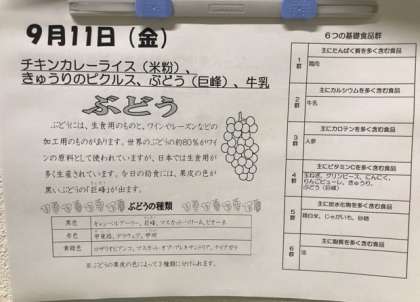 9月11日（金）
チキンカレーライス（米粉）、
きゅうりのピクルス、ぶどう（巨峰）、牛乳
ぶどう
ぶどうには、生食用のものと、ワインやレーズンなどの
加工用のものがあります。世界のぶどうの約80%がワイ
ンの原料として使われていますが、日本では生食用が
多く生産されています。今日の給食には、果皮の色が
黒いぶどうの「巨峰」が出ます。
ぶどうの種類
黒色 キャンベルアーリー、巨峰、マスカットベリーA、ピオーネ
赤色 甲斐路、デラウェア、甲州
黄緑色 ロザリオビアンコ、マスカット・オブ・アレキサンドリア、ナイアガラ
※ぶどうの果皮の色によって3種類に分けられます。
6つの基礎食品群
主にたんぱく質を多く含む食品
1群 鶏肉
主にカルシウムを多く含む食品
2群 牛乳
主にカロテンを多く含む食品
3群 人参
主にビタミンCを多く含む食品
4群 玉ねぎ、グリンピース、にんにく、
りんごピューレ、きゅうり、
ぶどう（巨峰）
主に炭水化物を多く含む食品
5群 精白米、じゃがいも、砂糖
主に脂質を多く含む食品
6群 油